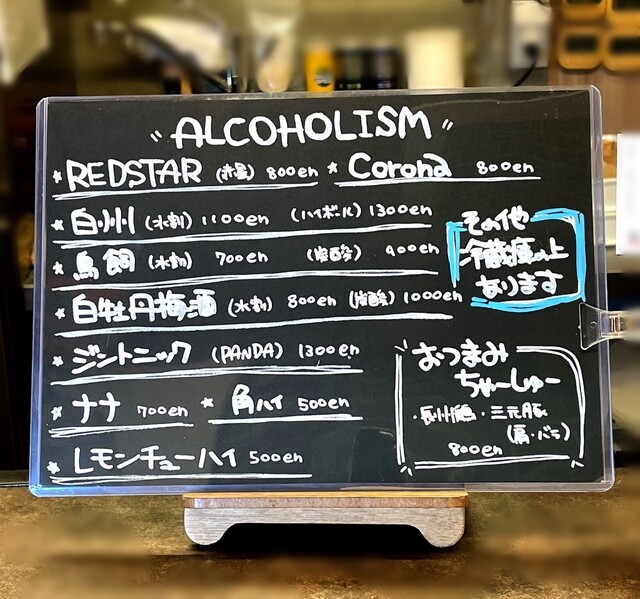 "ALCOHOLISM"
* REDSTAR (赤星) 800en * Corona 800en
* 白州 (水割) 1100en (ハイボール) 1300en
* 鳥飼 (水割) 700en (炭酸) 900en
* 白牡丹梅酒 (水割) 800en (炭酸) 1000en
* ジントニック (PANDA) 1300en
* ナナ 700en * 角ハイ 500en
* レモンチューハイ 500en
その他
冷蔵庫の上
なります
おつまみ
ちゃーしゅー
・長州鶏・三元豚
(肩・バラ)
800en